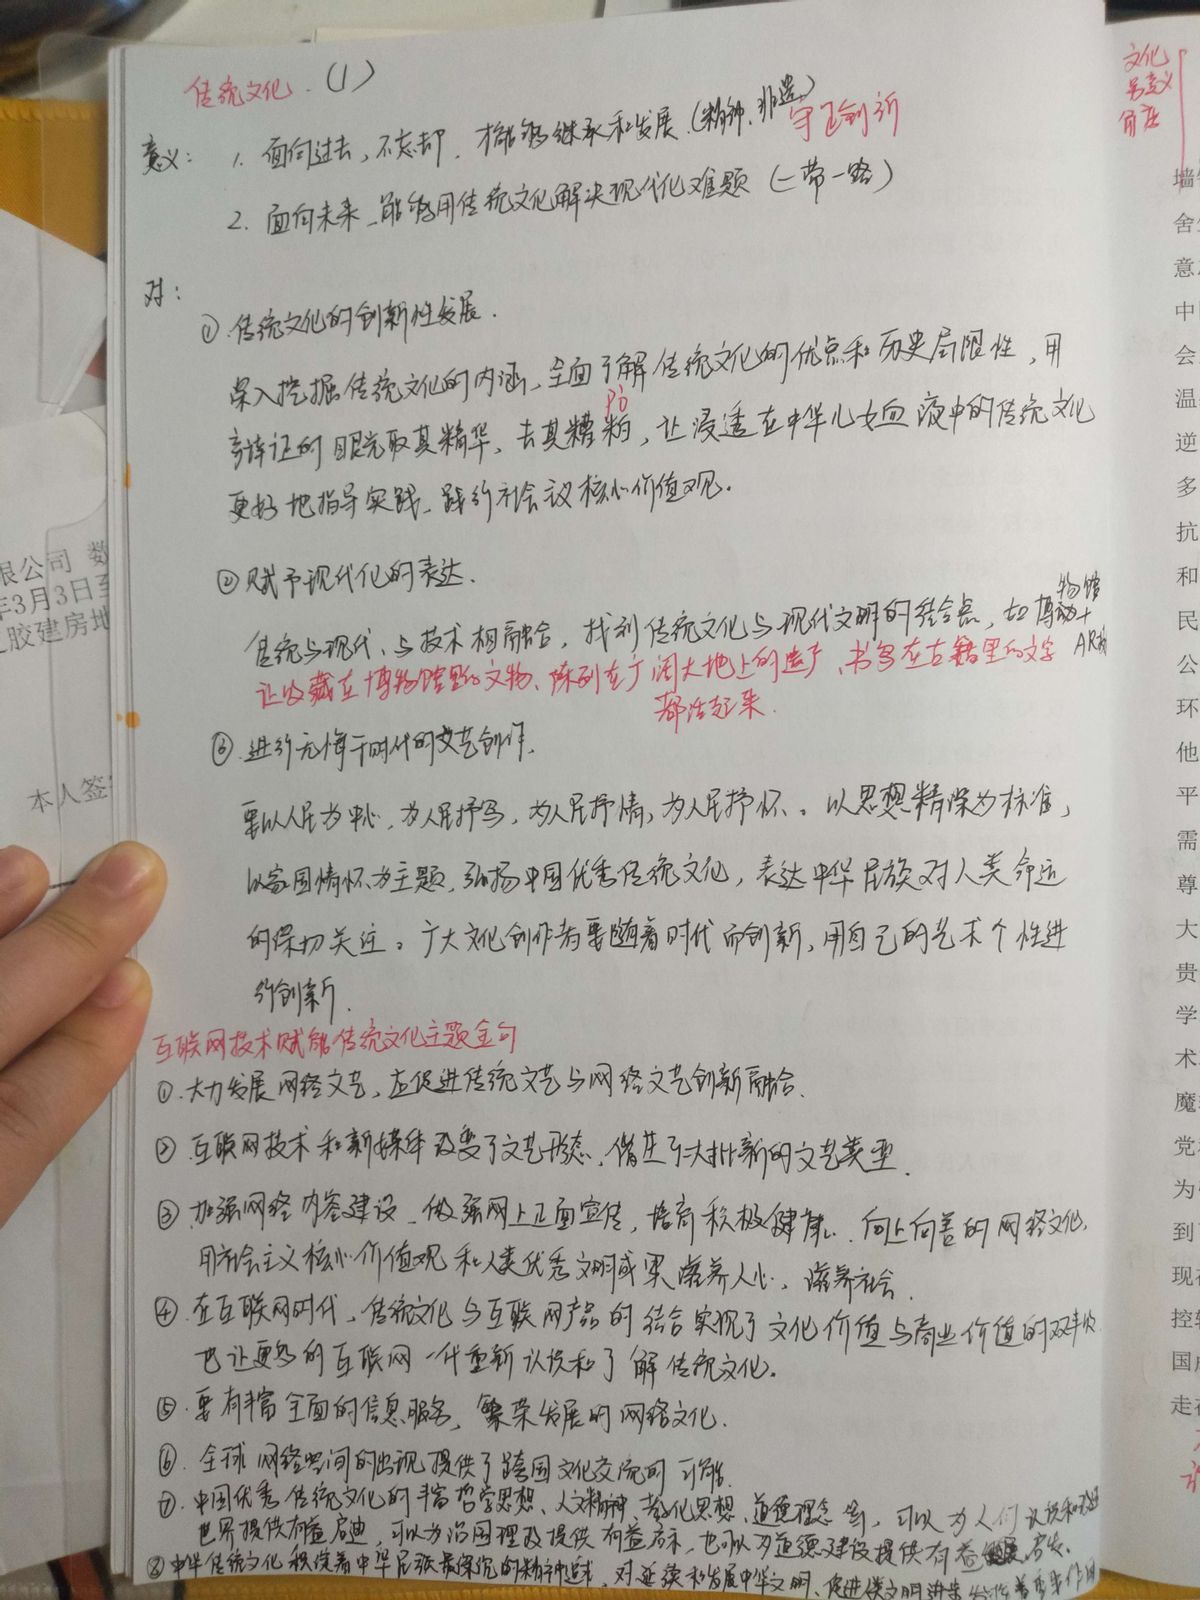 传统文化 (1)
意义： 1. 面向过去，不忘却，才能够继承和发展 (精神、非遗) 守正创新
2. 面向未来，能够用传统文化解决现代化难题 (一带一路)
对：
① 传统文化的创新性发展.
深入挖掘传统文化的内涵，全面了解传统文化的优点和历史局限性，用
辩证的眼光取其精华，去其糟粕，让浸透在中华儿女血液中的传统文化
pò
更好地指导实践，践行社会主义核心价值观.
② 赋予现代化的表达.
传统与现代、与技术相融合，找到传统文化与现代文明的结合点，如博物馆+
AR
让收藏在博物馆里的文物、陈列在广阔大地上的遗产、书写在古籍里的文字
都活起来.
③ 进行无悔于时代的文艺创作.
要以人民为中心，为人民抒写，为人民抒情，为人民抒怀。以思想精深为标准，
以家国情怀为主题，弘扬中国优秀传统文化，表达中华民族对人类命运
的深切关注。广大文化创作者要随着时代而创新，用自己的艺术个性进
行创新
互联网技术赋能传统文化主题金句
①. 大力发展网络文艺，在促进传统文艺与网络文艺创新融合.
② 互联网技术和新媒体改变了文艺形态，催生了大批新的文艺类型.
③ 加强网络内容建设，做强网上正面宣传，培育积极健康、向上向善的网络文化，
用社会主义核心价值观和人类优秀文明成果滋养人心，滋养社会.
④ 在互联网时代，传统文化与互联网产品的结合实现了文化价值与商业价值的双丰收
也让更多的互联网一代重新认识和了解传统文化。
⑤. 要有丰富全面的信息服务，繁荣发展的网络文化.
⑥. 全球网络空间的出现提供了跨国文化交流的可能.
⑦. 中国优秀传统文化的丰富哲学思想、人文精神、教化思想、道德理念等，可以为人们认识和改造
世界提供有益启迪，可以为治国理政提供有益启示，也可以为道德建设提供有益启发.
⑧ 中华传统文化积淀着中华民族最深沉的精神追求，对延续和发展中华文明、促进人类文明进步发挥着重要作用
文化
另意义
角度
墙
舍
意
中
会
温
逆
多
抗
和
民
公
环
他
平
需
尊
大
贵
学
术
魔
党
为
到
现
控
国
走
限公司 数
年3月3日至
胶建房地
本人签